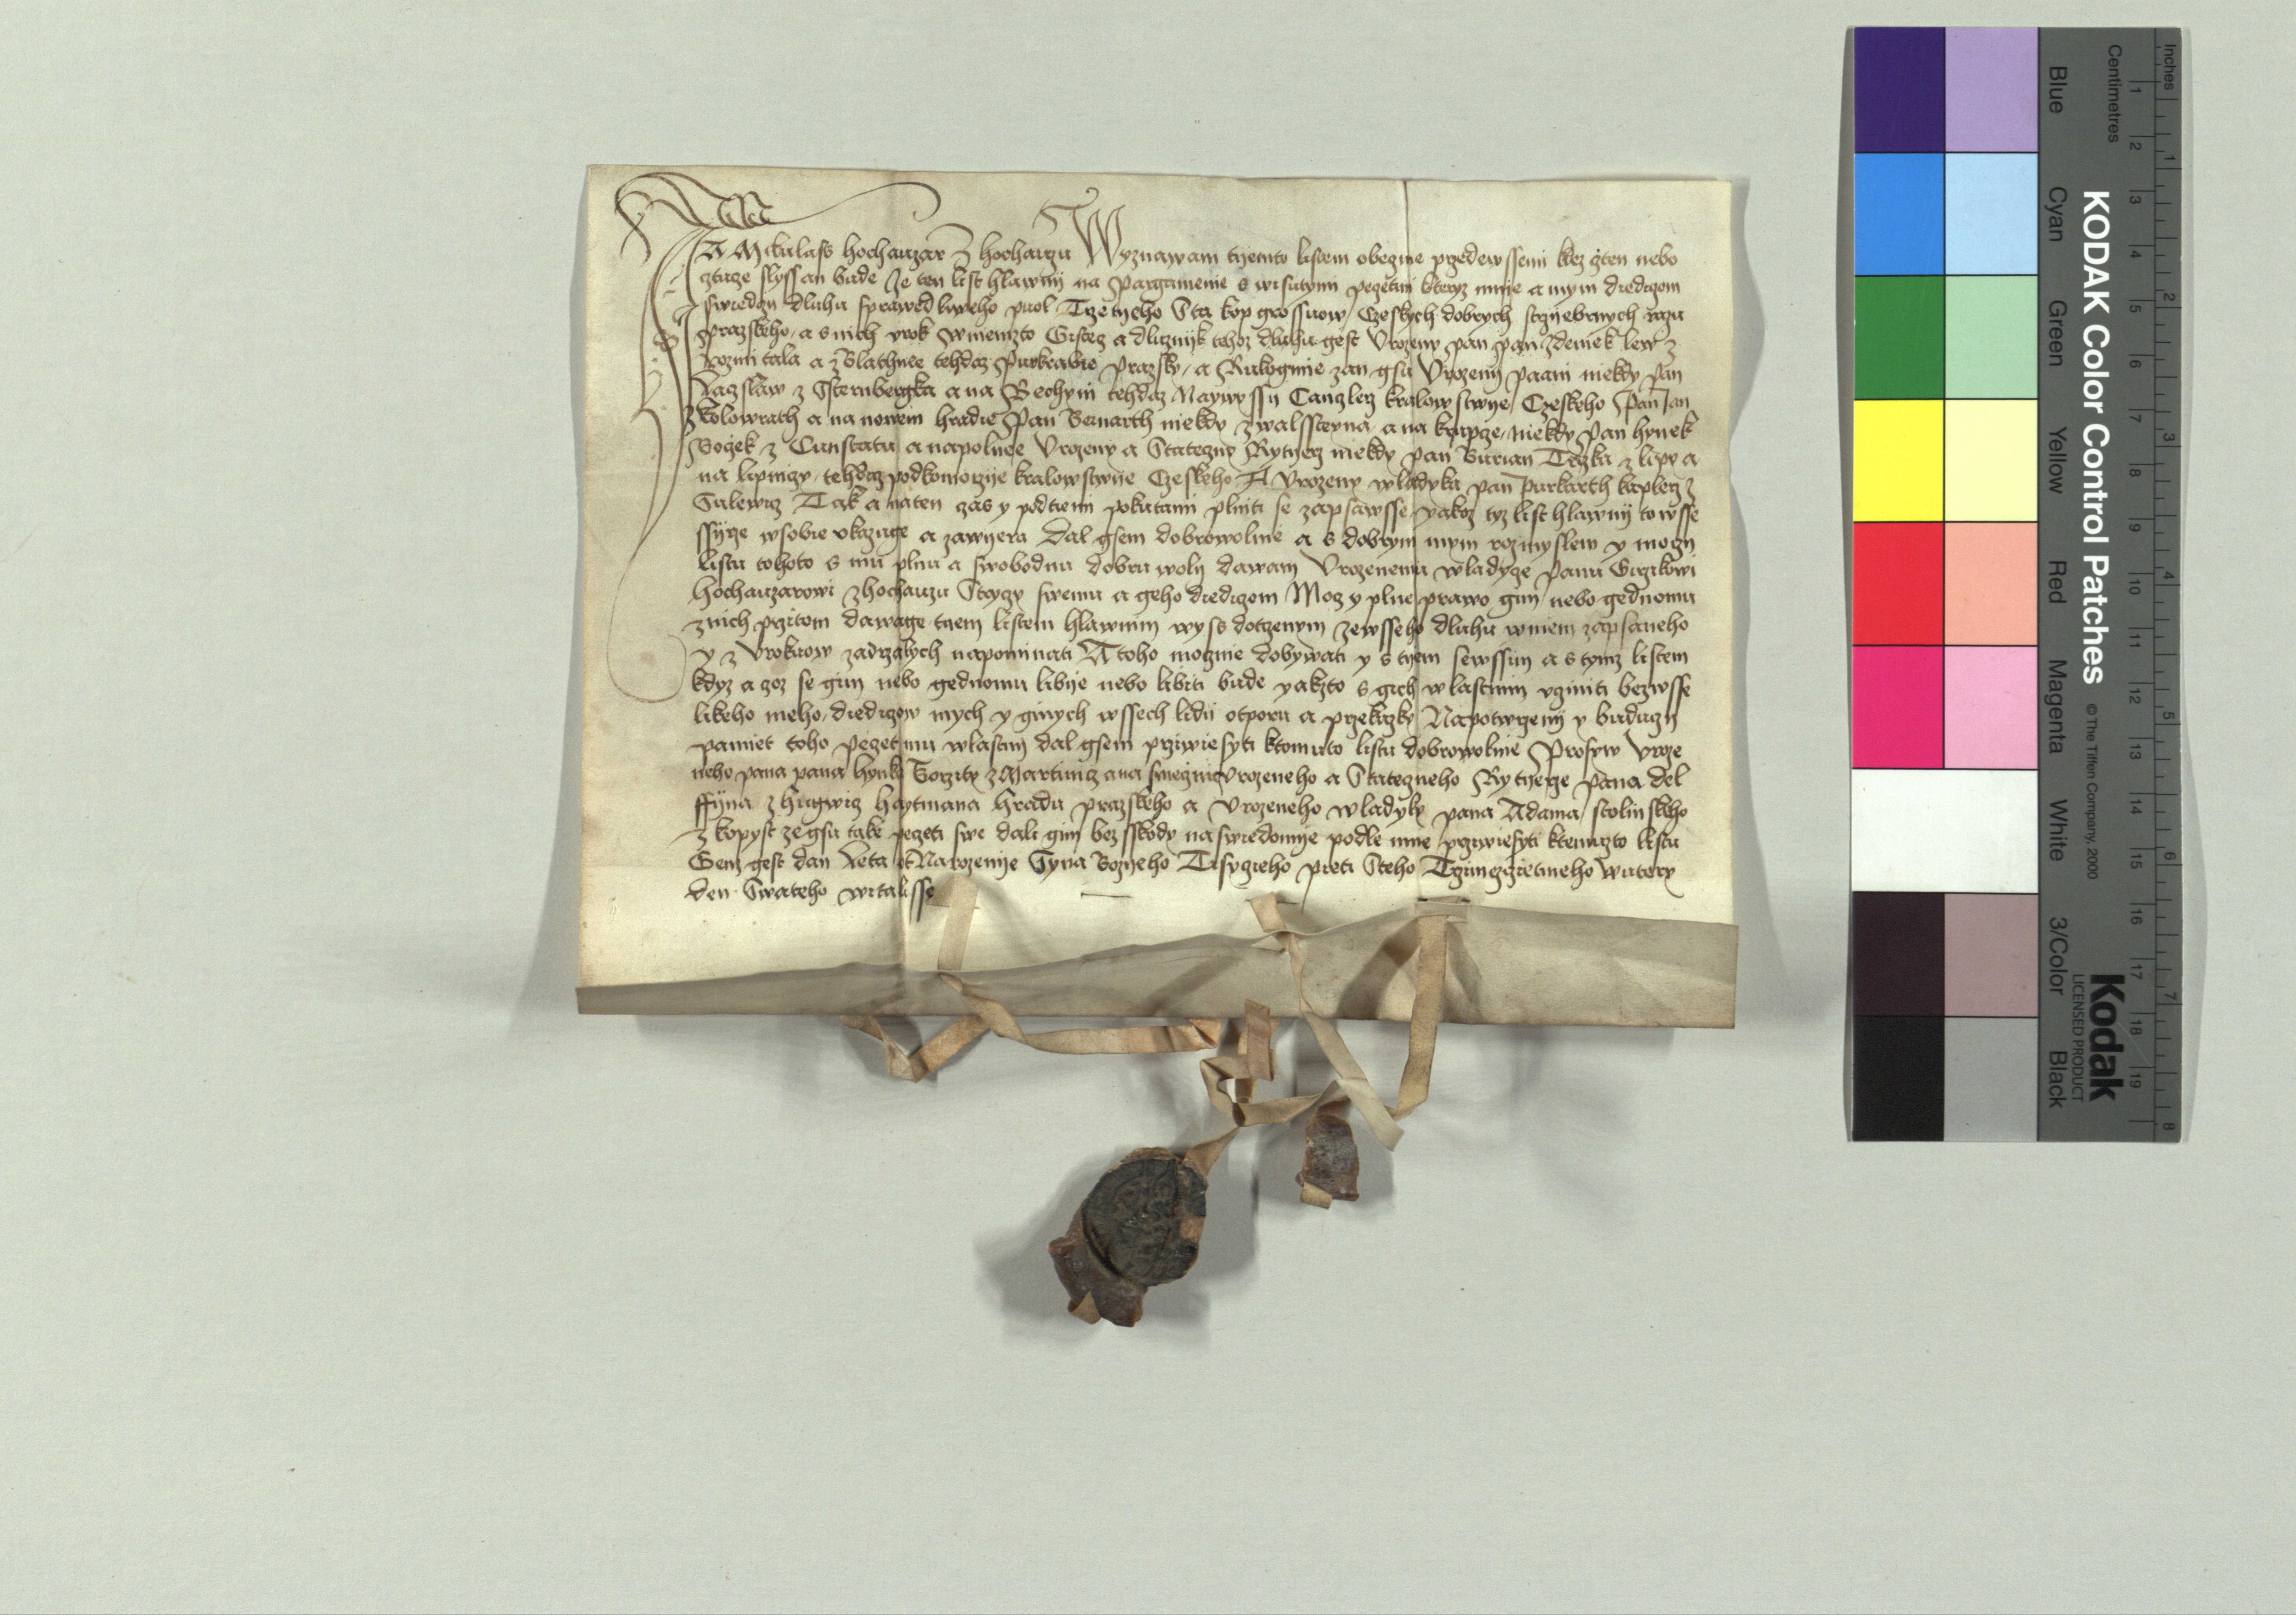 JA Mikulass hochauzar Z hochauzu Wyznawam tijemto listem obeczne przedewssemi ktez gten nebo
cztucze slyssan bude Ze ten list hlawnij na Pargamenie s wisutymi peczetmi kteryz mnie a mym diediczom
swiedczy dluhu sprawedliweho puol Trzetyeho Sta kop grossuow Czeskych dobrych strziebrnych razu
Prazskeho a s nich vrok Wniemzto Gistecz a dluznijk tehoz dluhu gest Vrozeny pan pan Zdeniek lew z
Rozmitala a z Blathnee tehdaz Purkrabie Prazsky a Rukogmie zan gsu Vrozenij paani niekdy pan
Laczslaw z Ssternbergka a na Bechyni tehdaz Naywyssij Canczlerz kralowstwije Czeskeho Pan Jan
z Kolowrath a na nowem hradie Pan Bernarth niekdy z walssteyna a na krupcze niekdy Pan hynek
Boczek z Cunstatu a napolnee Vrozeny a Stateczny Rytijerz niekdy pan Burian Trczka z lipy a
na lipniczy tehdaz podkomorzije kralowstwije Czeskeho A Vrozeny wladyka pan Purkarth kaplerz z
Sulewicz Tak a naten czas y podtiemi pokutami plniti se zapsawsse yakoz tyz list hlawnij to wsse
ssijrze wsobie vkazuge a zawijera Dal gsem dobrowolnie a s dobrym mym rozmyslem y moczy
listu tohoto s mu plnu a swobodnu dobru woly dawam Vrozenemu wladycze panu Girzikowi
hochauzarowi zhochauzu Stryczy swemu a geho diediczom Mocz y plne prawo gim nebo gednomu
znich przitom dawage tuem listem hlawnim wyss dotczenym zewsseho dluhu wniem zapsaneho
y z Vrokuow zadrzalych napominati A toho moznie dobywati y s tijem sewssim a s tymz listem
kdyz a zoz se gim nebo gednomu libije nebo libiti bude yakzto s gich wlastnim vcziniti bezwsse
likeho meho diediczow mych y ginych wssech lidij otporu a przekazky Napotwrzenij y buduczy
pamiet toho peczet mu wlastnij dal gsem prziwiesyti ktomuto listu dobrowolnie Prosyw Vroze
neho pana pana hynka Borzity z Martinicz a na smeczne Vrozeneho a Stateczneho Rytijerze Pana del
ffijna z hugwicz haytmana hradu prazskeho a Vrozeneho wladyky pana Adama stolinskeho
z kopyst ze gsu take peczeti swe dali gim bez sskody na swiedomije podle mne prziwiesyti ktemuzto listu
Genz gest dan Leta ot Narozenije Syna Bozijeho Tisyczieho pieti Steho Trzinczzietineho Wuterý
den Swateho witalisse
Inches
Centimetres
1
2
3
4
5
6
7
8
9
10
11
12
13
14
15
16
17
18
19
1
2
3
4
5
6
7
8
KODAK Color Control Patches
© The Tiffen Company, 2000
Kodak
LICENSED PRODUCT
Blue
Cyan
Green
Yellow
Red
Magenta
White
3/Color
Black